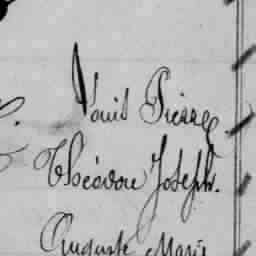 Louis Pierre
Théodore Joseph.
Auguste Marie